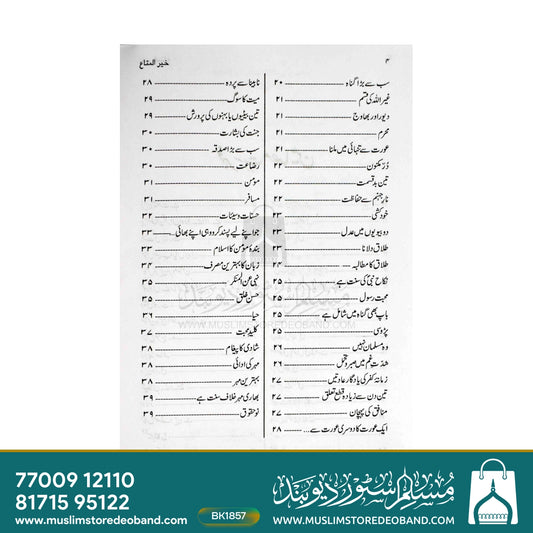 ۴
خیر المتاع
سب سے بڑا گناہ ۲۰
غیر اللہ کی قسم ۲۱
دیور اور بھاوج ۲۱
محرم ۲۱
عورت سے تنہائی میں ملنا ۲۱
دُرِّ مکنون ۲۲
تین بدقسمت ۲۲
نارِ جہنم سے حفاظت ۲۲
خودکشی ۲۳
دو بیویوں میں عدل ۲۳
طلاق دلانا ۲۳
طلاق کا مطالبہ ۲۴
نکاح نبیؐ کی سنت ہے ۲۴
محبت رسول ۲۵
باپ بھی گناہ میں شامل ہے ۲۵
پڑوسی ۲۵
وہ مسلمان نہیں ۲۶
شدتِ غم میں صبر و تحمل ۲۶
زمانۂ کفر کی یادگار عادتیں ۲۷
تین دن سے زیادہ قطع تعلق ۲۷
منافق کی پہچان ۲۷
ایک عورت کا دوسری عورت سے ۲۸
نابینا سے پردہ ۲۸
میت کا سوگ ۲۹
تین بیٹیوں یا بہنوں کی پرورش ۲۹
جنت کی بشارت ۳۰
سب سے بڑا صدقہ ۳۰
رضاعت ۳۰
مؤمن ۳۱
مسافر ۳۱
حسنات و سیئات ۳۲
جو اپنے لیے پسند کرو وہی اپنے بھائی ۳۳
بندۂ مؤمن کا اسلام ۳۳
زبان کا بہترین مصرف ۳۴
نہی عن المنکر ۳۵
حسن خلق ۳۵
حیا ۳۶
کلیدِ محبت ۳۷
شادی کا پیغام ۳۸
مہر کی ادائی ۳۸
بہترین مہر ۳۸
بھاری مہر خلاف سنت ہے ۳۹
نو حقوق ۳۹
مسلم سٹور دیوبند
WWW.MUSLIMSTOREDEOBAND.COM
77009 12110
81715 95122
www.muslimstoredeoband.com
BK1857
مسلم سٹور دیوبند
WWW.MUSLIMSTOREDEOBAND.COM